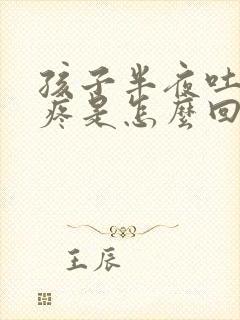 孩子半夜吐
疼是怎麼回
王辰